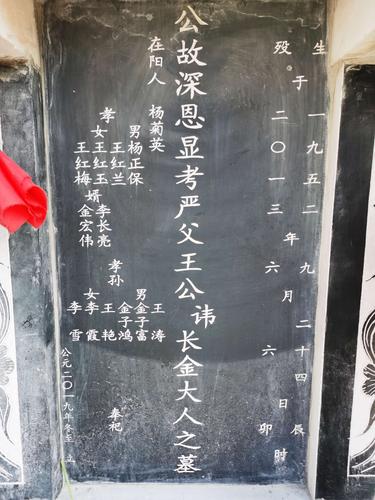 生于一九五二年九月二十四日辰时
殁 二〇一三 六 六 卯
公故深恩显考严父王公讳长金大人之墓
在阳人 杨菊英
孝
男杨正保
王红兰
女王红玉
王红梅
婿
李长亮
金宏伟
孝孙
男
王涛
金子富
金子鸿
女
王艳
李霞
李雪
奉祀
公元二〇一九年冬至 立